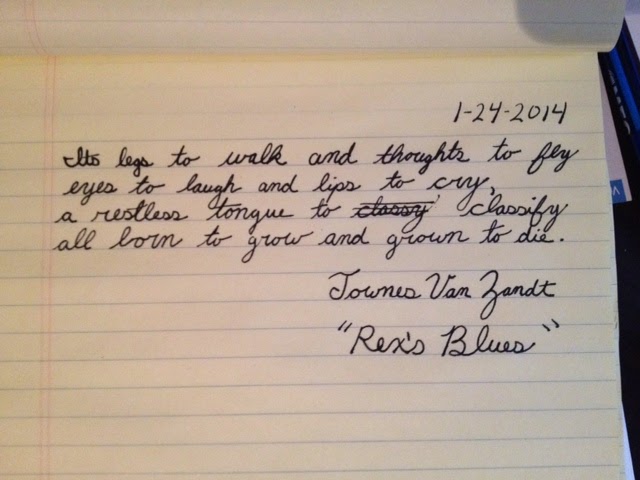 1-24-2014
Its legs to walk and thoughts to fly
eyes to laugh and lips to cry,
a restless tongue to classy classify
all born to grow and grown to die.
Townes Van Zandt
"Rex's Blues"